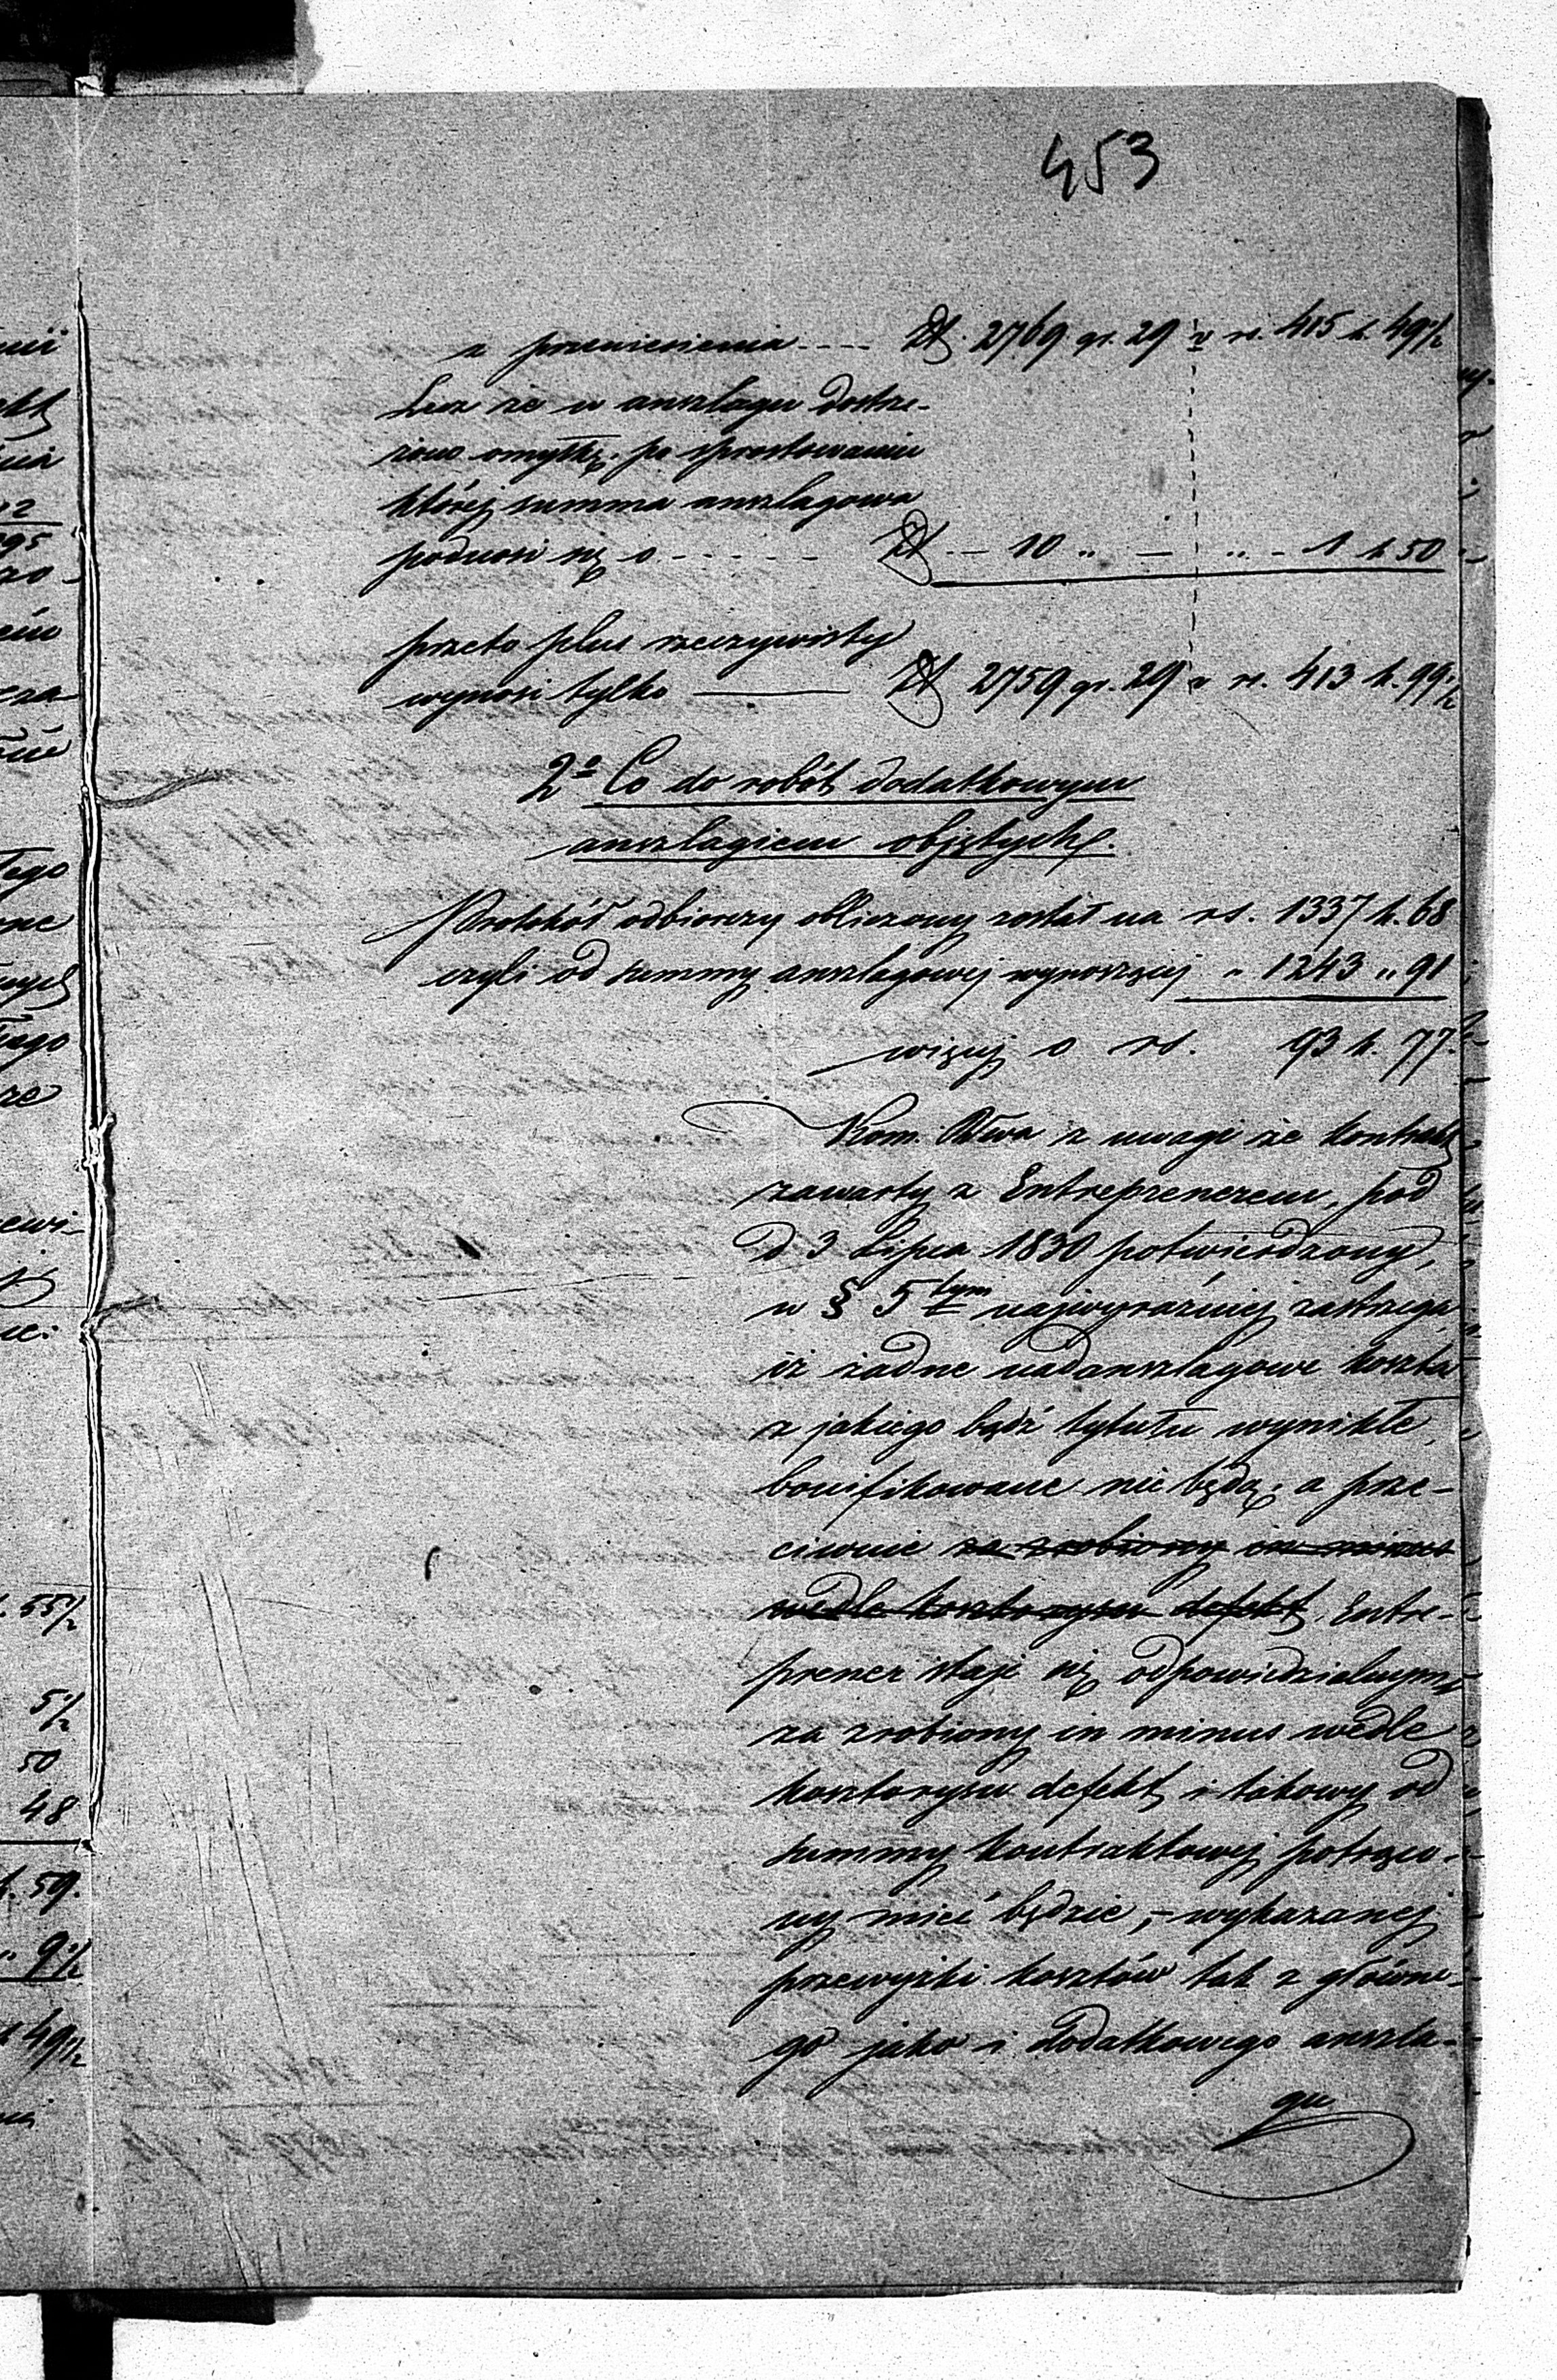 453
z przeniesienia .... Zł. 2769 gr. 29 v rs. 415 k. 49½
Lecz że w anszlagu dostrze-
żono omyłkę, po sprostowaniu
której summa anszlagowa
podnosi się o ...... Zł — 10 „ — „ - 1 k 50
przeto plus rzeczywisty
wynosi tylko ——— Zł 2759 gr. 29 v rs. 413 k. 99½
2º Co do robót dodatkowym
anszlagiem objętych.
Protokół odbiorczy obliczony został na rs. 1337 k. 68
czyli od summy anszlagowej wynoszącej „ 1243 „ 91
więcej o rs. 93 k. 77.
Kom. Wwa z uwagi że kontrakt
zawarty z Entreprenerem, pod
d 3 Lipca 1830 potwierdzony,
w § 5tym najwyraźniej zastrzega,
iż żadne nadanszlagowe koszta
z jakiego bądź tytułu wynikłe,
bonifikowane nie będą, a prze-
ciwnie za zrobiony in minus
wedle kosztorysu defekt, Entre-
prener staje się odpowiedzialnym
za zrobiony in minus wedle
kosztorysu defekt i takowy od
summy kontraktowej potrąco-
ny mieć będzie, – wykazanej
przewyżki kosztów tak z główne-
go jako i dodatkowego anszla-
gu